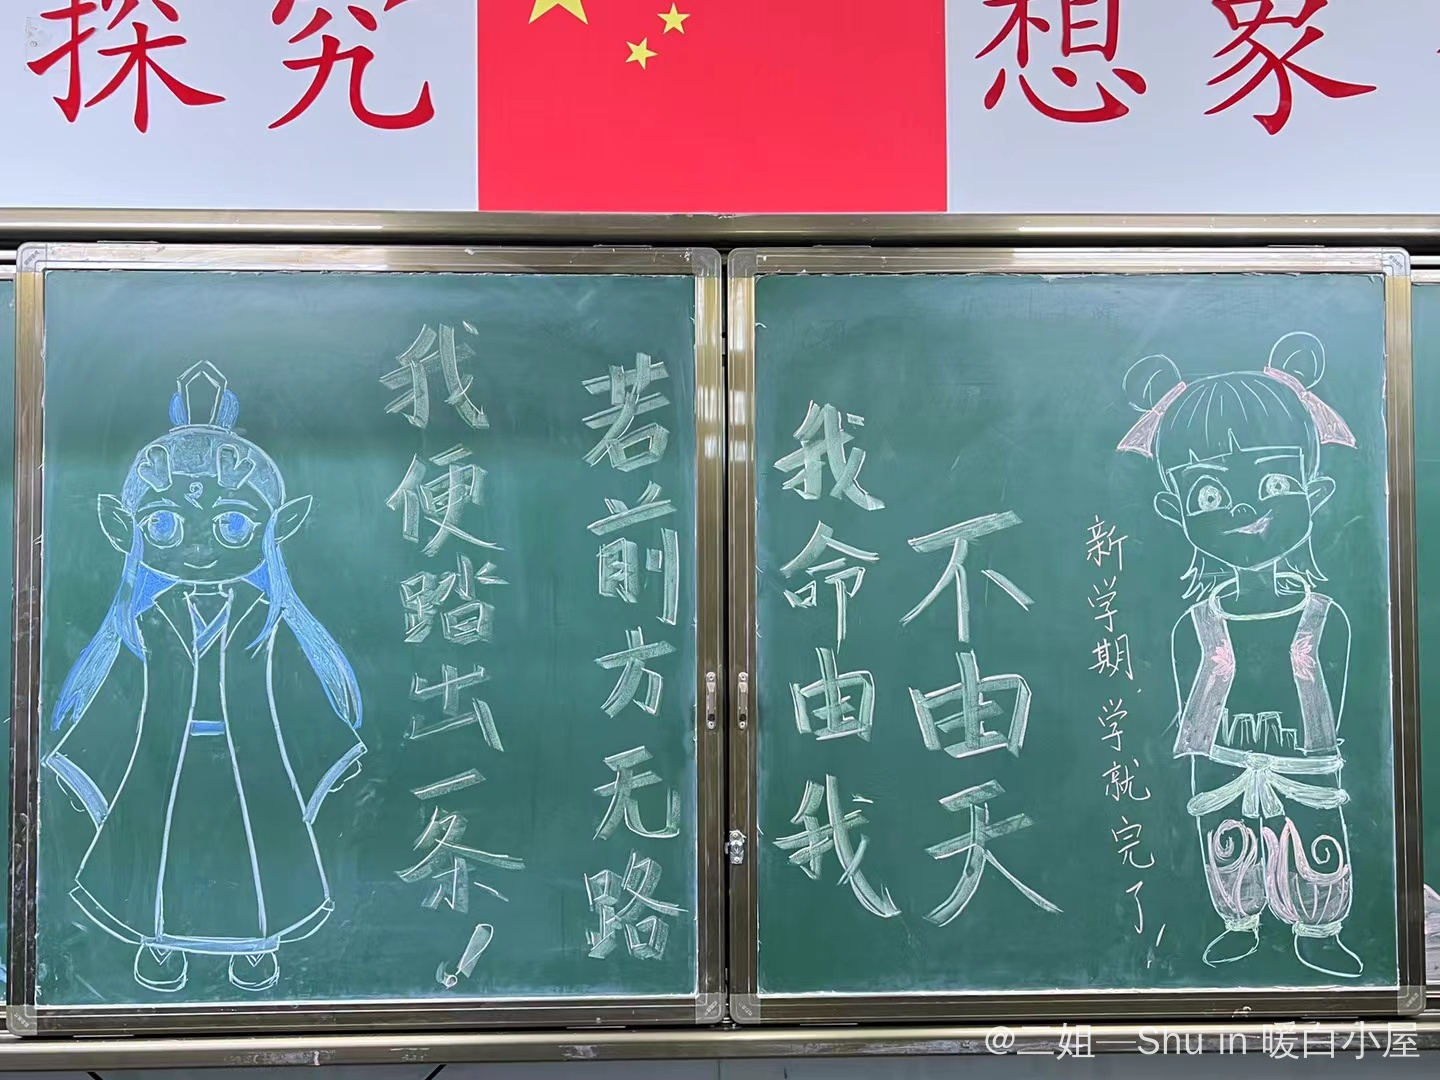 探究
想象
若前方无路
我便踏出一条!
新学期,学就完了!
不由天
我命由我
@二姐—Shu in 暖白小屋